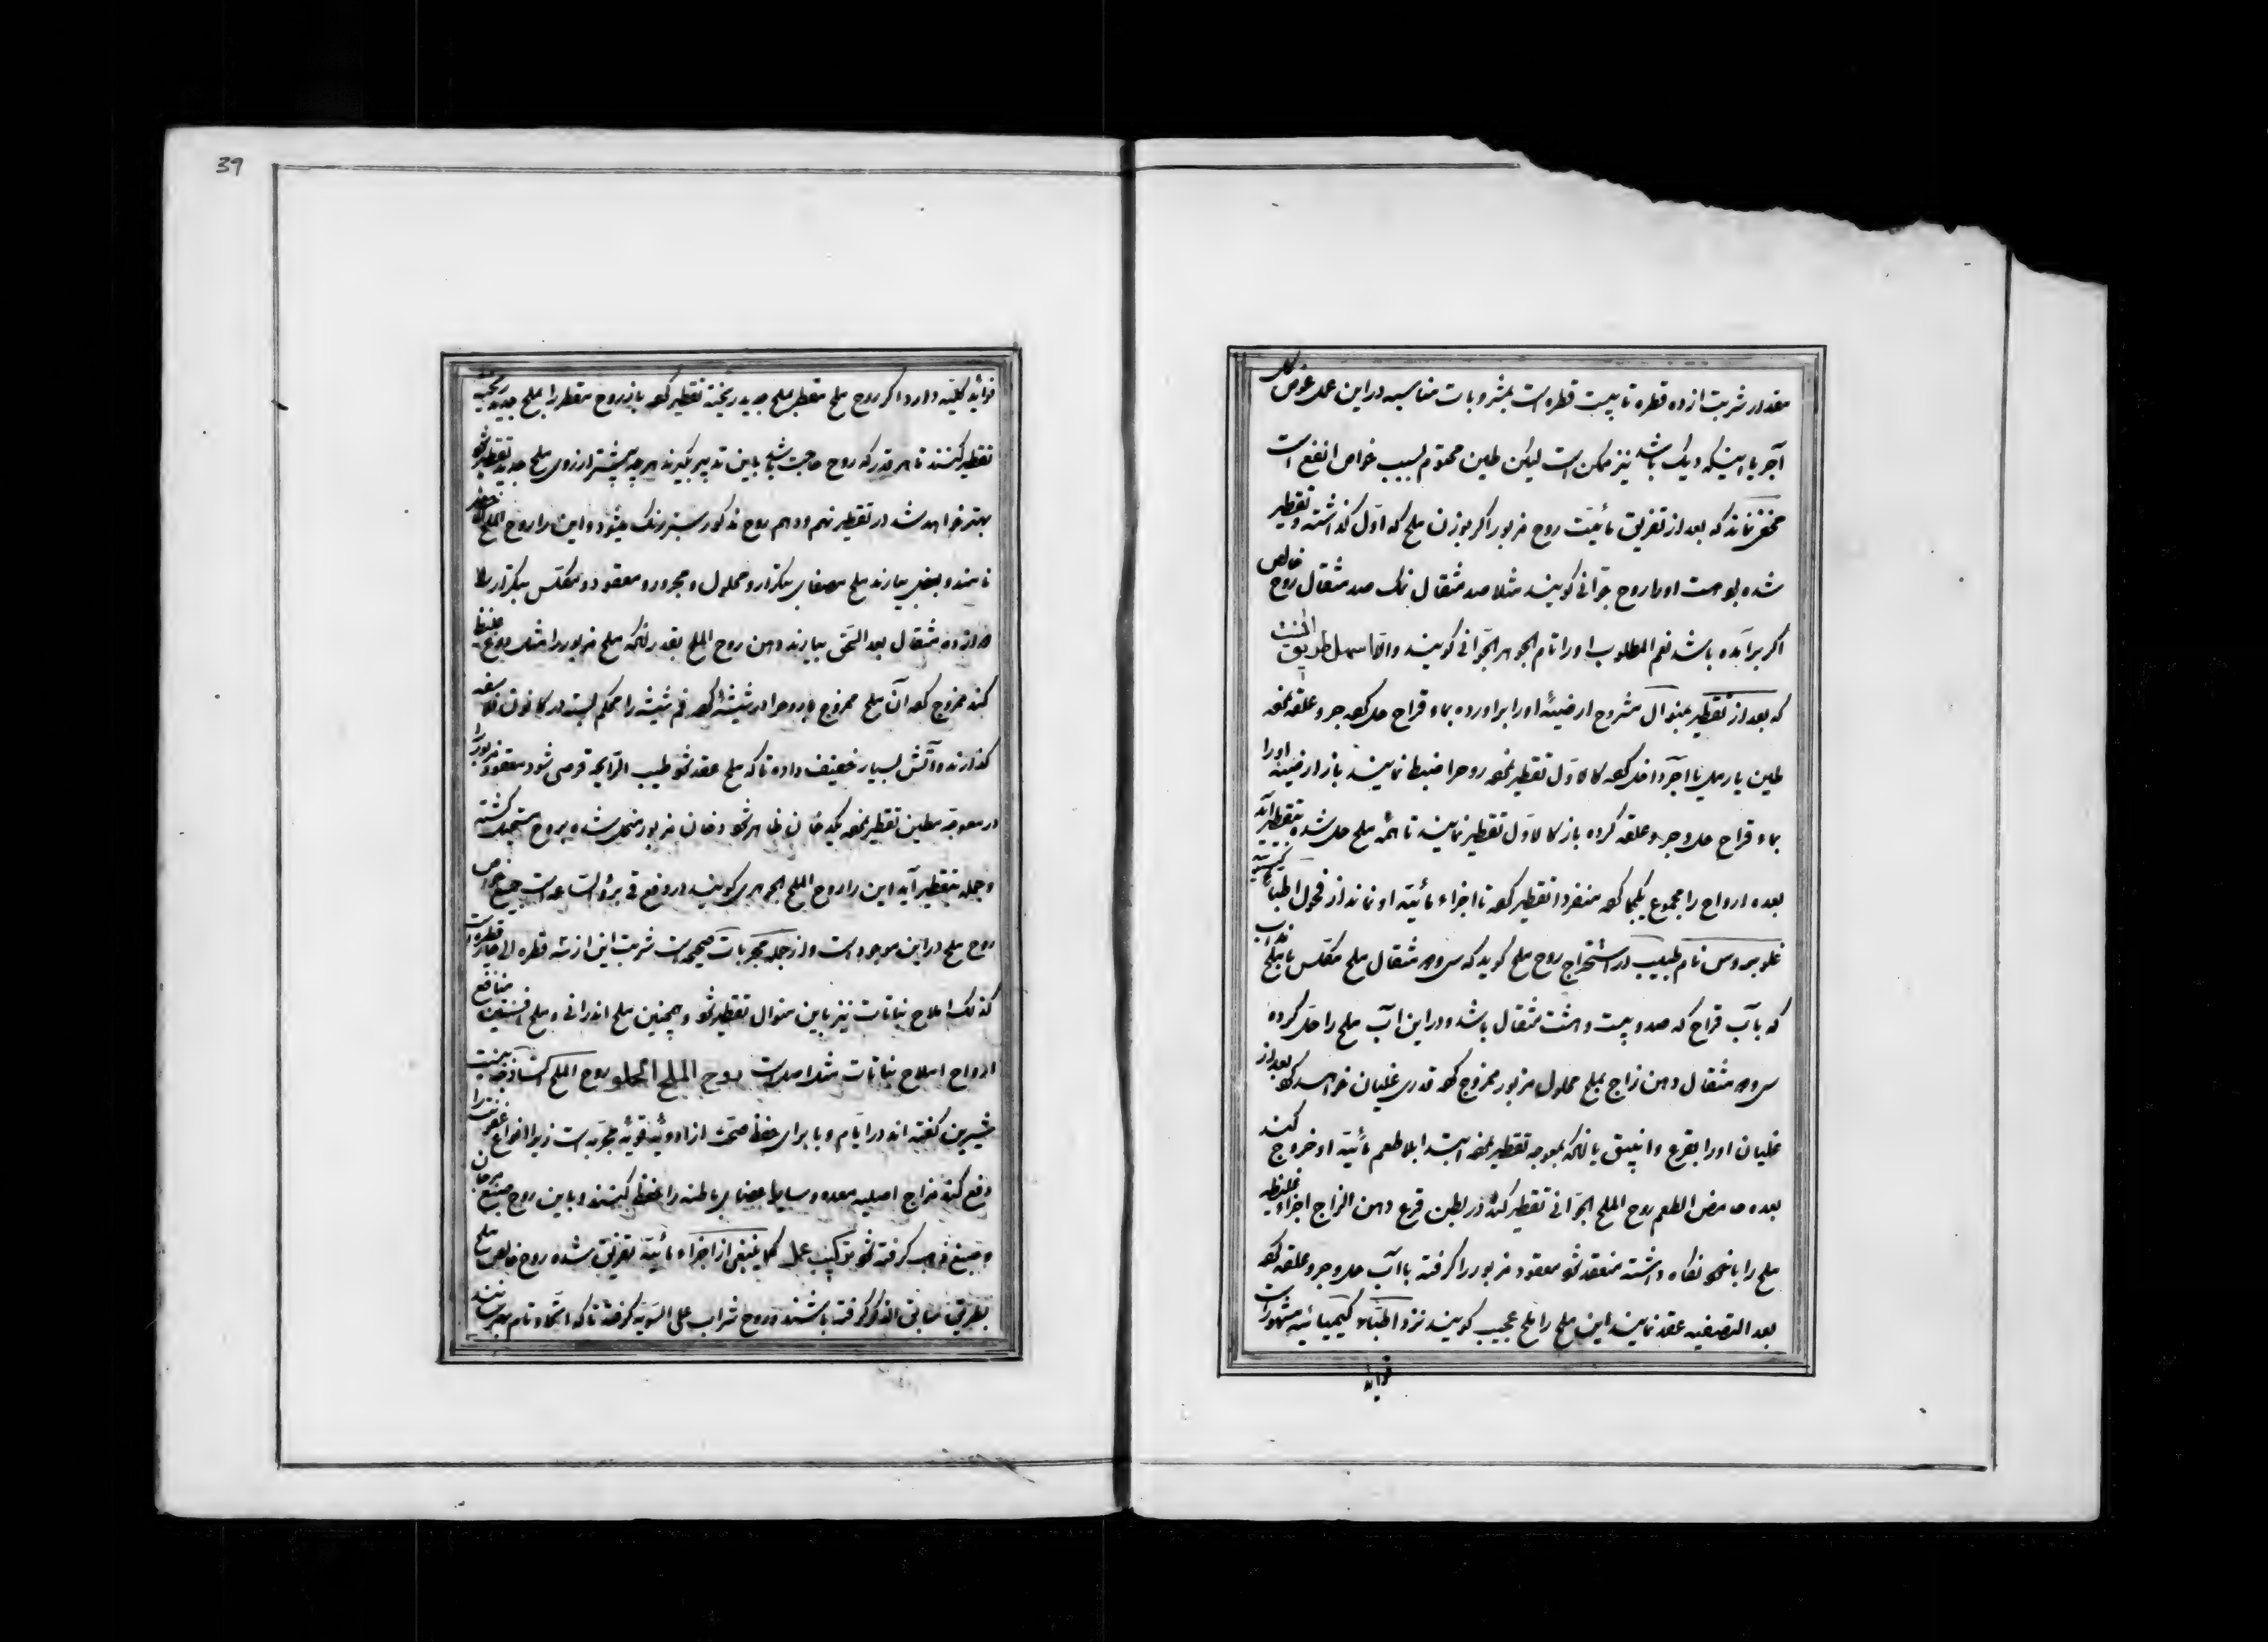 مقدار شربت از ده قطره تا بیست قطره است بمشروبات مناسبه در این عمل عوض کل
آجر یا اینکه دیک باشد نیز ممکن است لیکن طین مختوم بسبب خواص انفع است
مخفی نماند که بعد از تفریق مائیت روح مزبور اکر بوزن ملح که اول کذاشته و تقطیر
شده بوده است اورا روح جوانی کویند مثلا صد مثقال نمک صد مثقال روح خالص
اکر برآمده باشد نعم المطلوب اورا تام الجوهر الجوانی کویند والا اسهل طریق
که بعد از تقطیر بمنوال مشروح ارضیته اورا براورده بماء قراح حل کرده جر و علقه نموده
طین یا رمل یا آجر داخل کرده کالاول تقطیر نموده روح را ضبط نمایند باز ارضیته اورا
بماء قراح حل و جر و علقه کرده باز کالاول تقطیر نمایند تا همه ملح حل شده متقطر آید
بعده ارواح را مجموع یکجا کرده منفردا تقطیر کرده تا اجزاء مائیة او نماند از فحول اطبا
نام طبیب در استخراج روح ملح کوید که سی و دو مثقال ملح مکلس یا ملح
که بآب قراح که صد و بیست و هشت مثقال باشد و در این آب ملح را حل کرده
سی و دو مثقال دهن زاج بملح محلول مزبور ممزوج کرده قدری غلیان خواهد کرد بعد از
غلیان اورا بقرع و انبیق یا انکه بمعوجه تقطیر نموده ابتدا بلا طعم مائیة او خروج کند
بعده حامض الطعم روح الملح الجوانی تقطیر کند در بطن قرع دهن الزاج اجزاء غلیظه
ملح را با خود نکاه داشته منعقد شود معقود مزبور را کرفته با آب حل و جر و علقه کرده
بعد التصفیه عقد نمایند این ملح را ملح عجیب کویند نزد اطباء کیمیائیه مشهور است
فواید
39
فواید کلیه دارد اکر روح ملح مقطر بملح جدید ریخته تقطیر کرده باز روح مقطر را بملح جدید ریخته
تقطیر کنند تا هر قدر که روح حاجت باشد باین تدبیر بکیرند هر چه بیشتر از روی ملح جدید تقطیر شود
بهتر خواهد شد در تقطیر نهم و دهم روح مذکور سبز رنک میشود و این را روح الملح
نامند و بعضی بیارند ملح مصفای بتکرار و محلول و مجرور و معقود و مکلس بتکرار
مثقال بعد السحق بیارند و من روح الملح بقدر انکه ملح مزبور را مثل
کند ممزوج کرده آن ملح ممزوج با روح را در شیشه کرده فم شیشه را محکم بسته در کانون فلاسفه
کذارند و آتش بسیار خفیف داده تا که ملح عقد شود طیب الرایحه قرصی شود معقود مزبور را
در معوجه مطین تقطیر نموده یکدخان ظاهر شود دخان مزبور منحل شده بروح مستحیل کشته
و جمله بتقطیر آید این را روح الملح الجوهری کویند در وضع فی برؤ الساعه است جمیع خواص
روح ملح در این موجود است و از جمله مجربات صحیحه است شربت این از سه قطره الی چهار قطره است
کذلک املاح نباتات نیز باین منوال تقطیر شود و همچنین ملح اندرانی و ملح افسنتین منافع
ارواح املاح نباتات مثل اصل است روح الملح الحلو روح الملح
شیرین کفته اند در ایام وبا برای حفظ صحت از ادویه قویه مجربه است زیرا انواع عفونت را
دفع کند مزاج اصلیه معده و سایر اعضای باطنه را حفظ کنند و باین روح صبغ مرجان
و صبغ ذهب کرفته شود ترکیب عمل کما ینبغی از اجزاء مائیة تفریق شده روح خالص ملح
بطریق سابق الذکر کرفته باشند و روح شراب علی السویه کرفته تا که اتحاد تام بهم رسانند